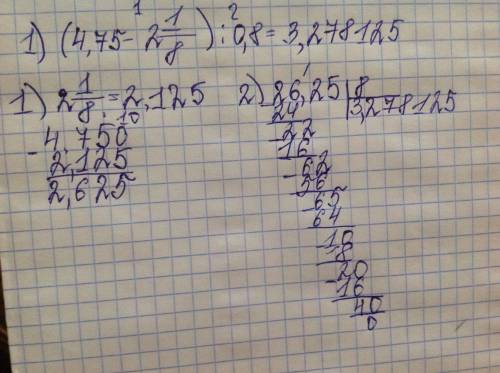 1) (4,75 - 2 1/8) : 0,8 = 3,278125
1 2
1) 2 1/8 = 2,125
10
- 4,750
2,125
2,625
2) 26,25 | 8
3,278125
24
- 22
16
- 62
56
- 65
64
- 10
8
- 20
16
40
0